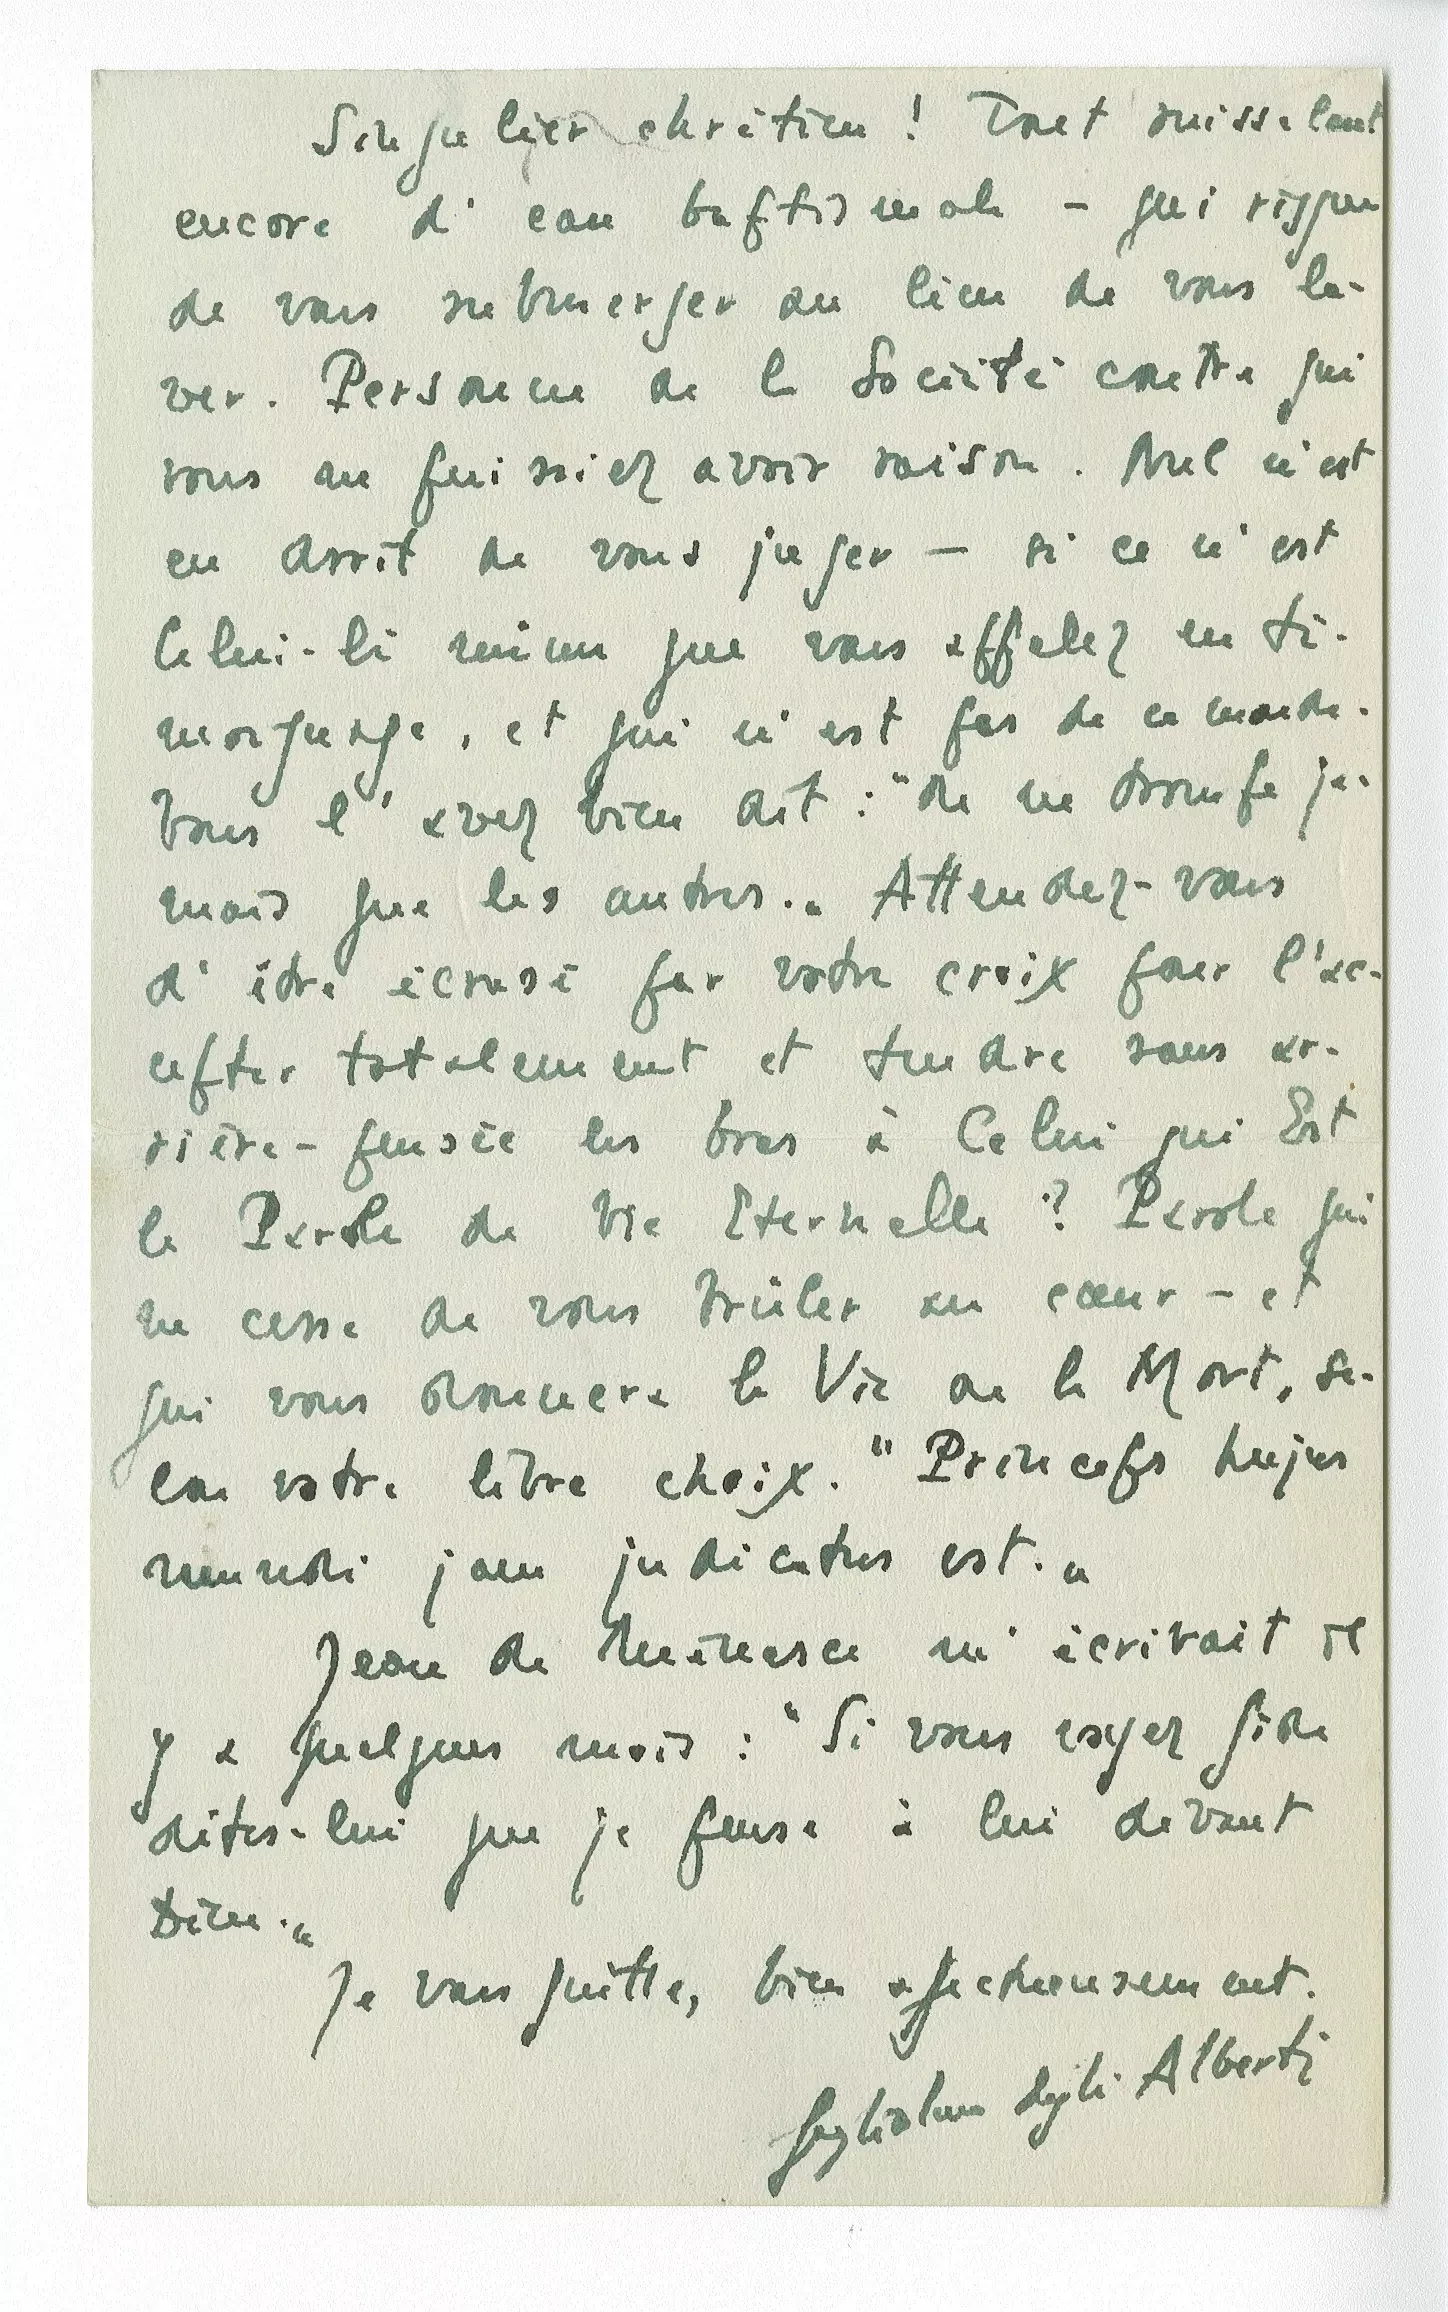 Singulier chrétien ! Tout ruisselant
encore d'eau baptismale — qui risque
de vous submerger au lieu de vous la-
ver. Personne de la Société contre qui
vous ne puissiez avoir raison. Nul n'est
en droit de vous juger — si ce n'est
Celui-là même que vous appelez en té-
moignage, et qui n'est pas de ce monde.
Vous l'avez bien dit : "On ne trompe ja-
mais que les autres." Attendez-vous
d'être écrasé par votre croix pour l'ac-
cepter totalement et tendre sans ar-
rière-pensée les bras à Celui qui Est
la Parole de Vie Eternelle ? Parole qui
ne cesse de vous brûler au cœur — et
qui vous donnera la Vie ou la Mort, se-
lon votre libre choix. "Princeps hujus
mundi jam judicatus est."
Jean de Menasce m'écrivait il
y a quelques mois : "Si vous voyez Gide
dites-lui que je pense à lui devant
Dieu."
Je vous quitte, bien affectueusement.
Guglielmo degli Alberti